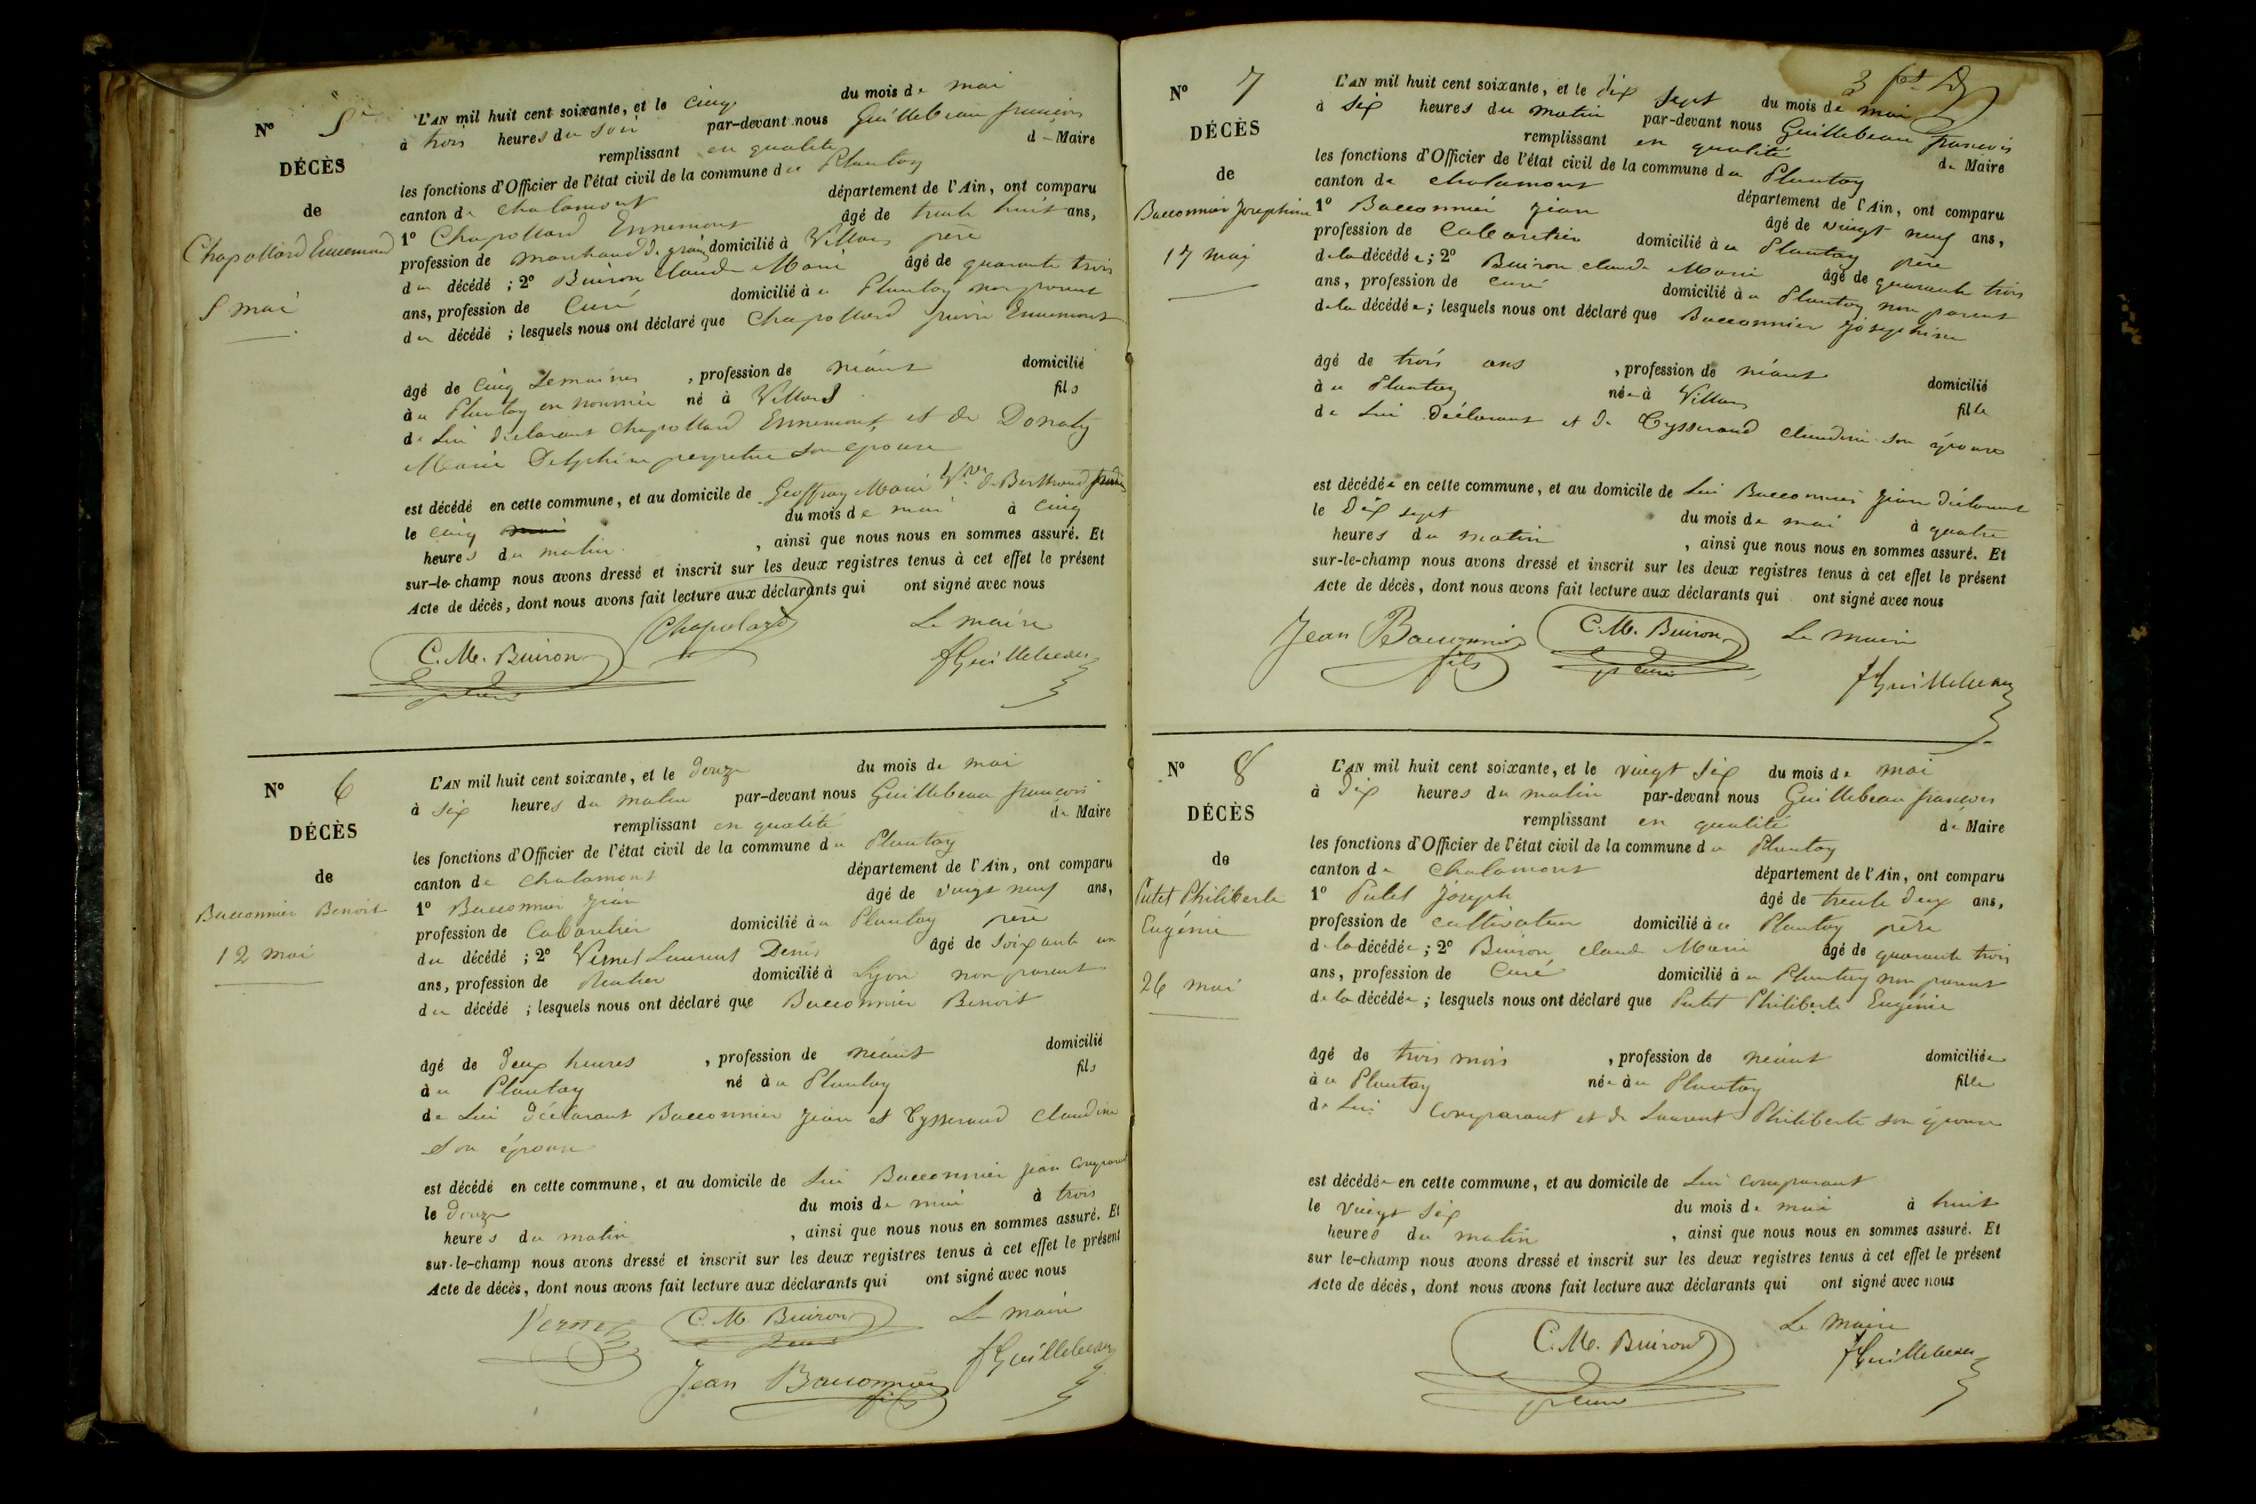 N° 5
DÉCÈS
de
Chapottard Ennemond
5 mai
L'AN mil huit cent soixante, et le cinq du mois de mai
à trois heures du soir par-devant nous Guillebeau françois
remplissant en qualité d Maire
les fonctions d'Officier de l'état civil de la commune du Plantay
canton de chalamont département de l'Ain, ont comparu
1° Chapottard Ennemont âgé de trente huit ans,
profession de marchand de grain domicilié à Villars père
du décédé ; 2° Buiron claude Marie âgé de quarante trois
ans, profession de Curé domicilié à u Plantay non parent
du décédé ; lesquels nous ont déclaré que Chapottard pierre Ennemont
âgé de cinq semaines , profession de néant domicilié
à u Plantay en nourrice né à Villars fils
de Lui déclarant Chapottard Ennemont et de Donaty
Marie Delphine perpetue son epouse
est décédé en cette commune, et au domicile de Geoffray Marie Vve de Berthaud
le cinq du mois de mai à cinq
heures du matin , ainsi que nous nous en sommes assuré. Et
sur-le-champ nous avons dressé et inscrit sur les deux registres tenus à cet effet le présent
Acte de décès, dont nous avons fait lecture aux déclarants qui ont signé avec nous
Chapolard Le maire
C. M. Buiron fGuillebeau
curé
N° 6
DÉCÈS
de
Bacconnier Benoit
12 mai
L'AN mil huit cent soixante, et le douze du mois de mai
à six heures du matin par-devant nous Guillebeau françois
remplissant en qualité de Maire
les fonctions d'Officier de l'état civil de la commune du Plantay
canton de chalamont département de l'Ain, ont comparu
1° Bacconnier jean âgé de vingt neuf ans,
profession de Cabaretier domicilié à u Plantay père
du décédé ; 2° Vernet Laurent Denis âgé de soixante un
ans, profession de Rentier domicilié à Lyon non parent
du décédé ; lesquels nous ont déclaré que Bacconnier Benoit
âgé de deux heures , profession de néant domicilié
à u Plantay né à u Plantay fils
de Lui déclarant Bacconnier jean et Tysserand claudine
son épouse
est décédé en cette commune, et au domicile de Lui Bacconnier jean comparant
le douze du mois de mai à trois
heures du matin , ainsi que nous nous en sommes assuré. Et
sur-le-champ nous avons dressé et inscrit sur les deux registres tenus à cet effet le présent
Acte de décès, dont nous avons fait lecture aux déclarants qui ont signé avec nous
Vernet C. M. Buiron Le maire
curé
Jean Bacconnier fGuillebeau
fils
N° 7
DÉCÈS
de
Bacconnier Josephine
17 mai
L'AN mil huit cent soixante, et le dix sept du mois de mai
à six heures du matin par-devant nous Guillebeau francois
remplissant en qualité de Maire
les fonctions d'Officier de l'état civil de la commune du Plantay
canton de chalamont département de l'Ain, ont comparu
1° Bacconnier jean âgé de vingt neuf ans,
profession de Cabaretier domicilié à u Plantay père
de la décédée ; 2° Buiron claude Marie âgé de quarante trois
ans, profession de curé domicilié à u Plantay non parent
de la décédée ; lesquels nous ont déclaré que Bacconnier joséphine
âgé de trois ans , profession de néant domicilié
à u Plantay née à Villars fille
de Lui déclarant et de Tysserand claudine son épouse
est décédée en cette commune, et au domicile de Lui Bacconnier jean déclarant
le dix sept du mois de mai à quatre
heures du matin , ainsi que nous nous en sommes assuré. Et
sur-le-champ nous avons dressé et inscrit sur les deux registres tenus à cet effet le présent
Acte de décès, dont nous avons fait lecture aux déclarants qui ont signé avec nous
Jean Bacconnier C. M. Buiron Le maire
fils curé
fGuillebeau
N° 8
DÉCÈS
de
Putet Philiberte
Eugénie
26 mai
L'AN mil huit cent soixante, et le vingt six du mois de mai
à dix heures du matin par-devant nous Guillebeau francois
remplissant en qualité de Maire
les fonctions d'Officier de l'état civil de la commune du Plantay
canton de chalamont département de l'Ain, ont comparu
1° Putet joseph âgé de trente deux ans,
profession de cultivateur domicilié à u Plantay père
de la décédée ; 2° Buiron claude Marie âgé de quarante trois
ans, profession de Curé domicilié à u Plantay non parent
de la décédée ; lesquels nous ont déclaré que Putet Philiberte Eugénie
âgé de trois mois , profession de néant domiciliée
à u Plantay née à u Plantay fille
de Lui comparant et de Laurent Philiberte son épouse
est décédée en cette commune, et au domicile de Lui comparant
le vingt six du mois de mai à huit
heures du matin , ainsi que nous nous en sommes assuré. Et
sur le-champ nous avons dressé et inscrit sur les deux registres tenus à cet effet le présent
Acte de décès, dont nous avons fait lecture aux déclarants qui ont signé avec nous
C. M. Buiron Le maire
curé fGuillebeau